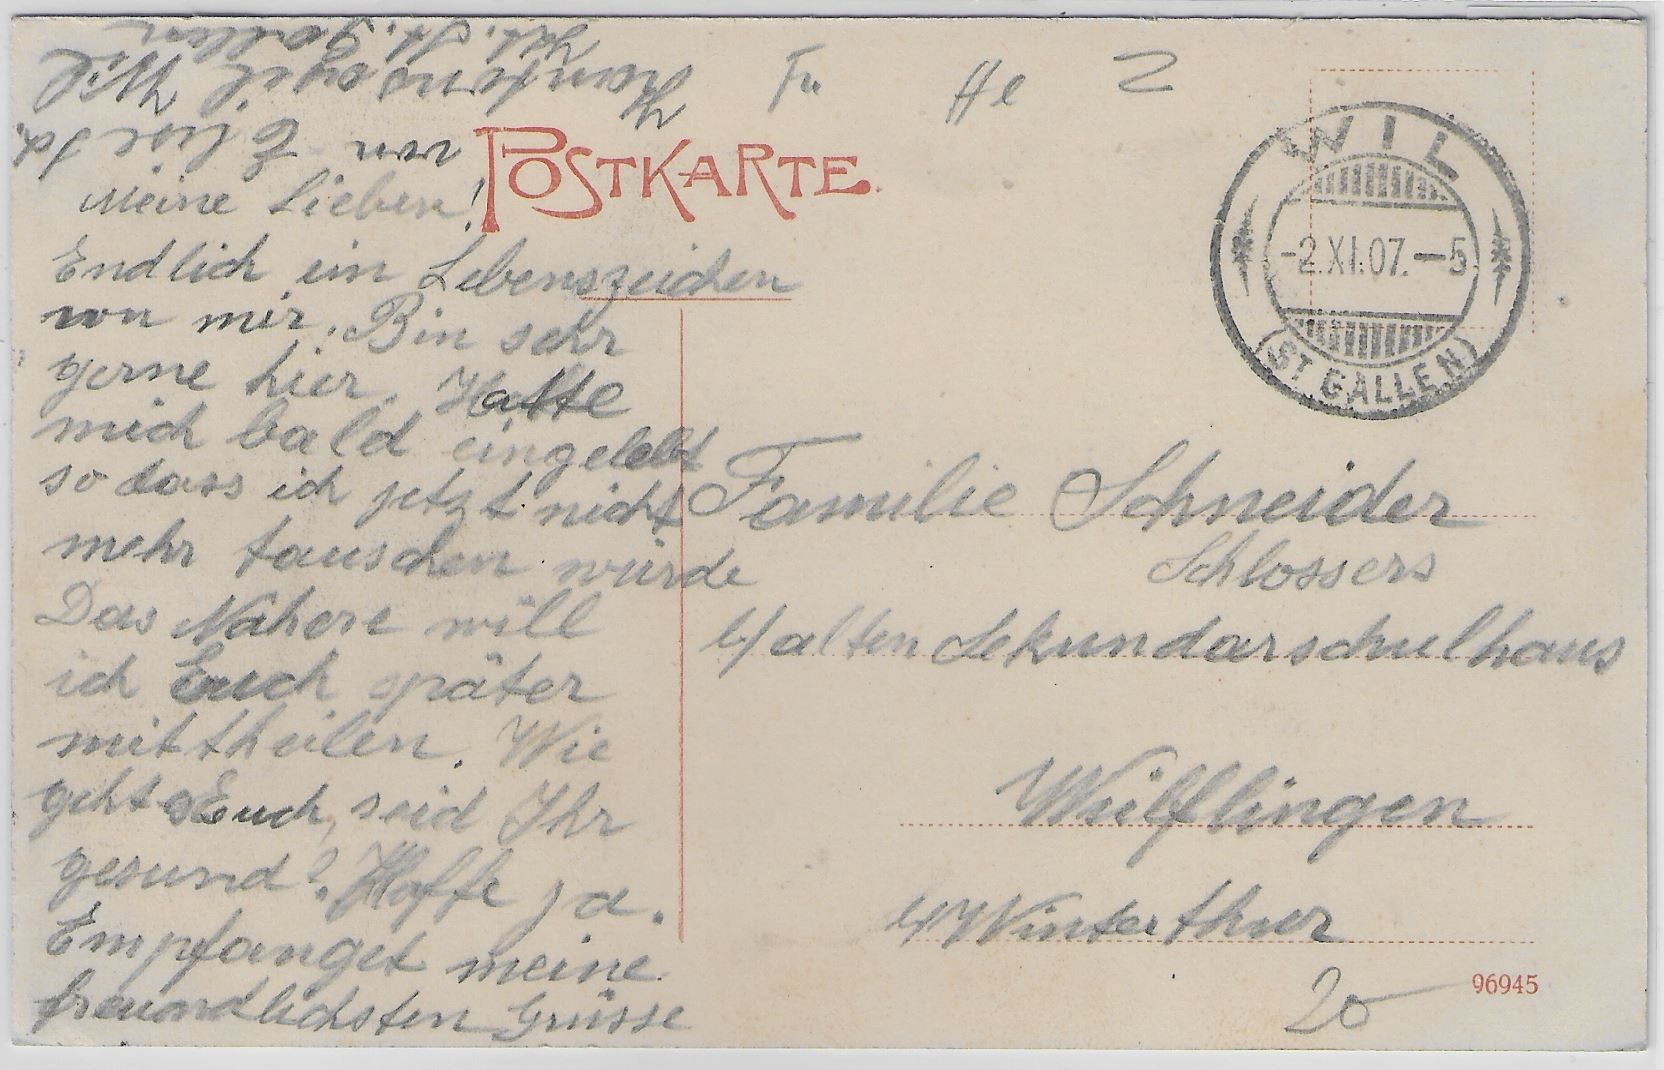 Fu He 2
POSTKARTE.
WIL
-2.XI.07.-5
(ST GALLEN)
Meine Lieben!
Endlich ein Lebenszeichen
von mir. Bin sehr
gerne hier. Hatte
mich bald eingelebt
so dass ich jetzt nicht
mehr tauschen würde
Das Nähere will
ich Euch später
mittheilen. Wie
geht es Euch, seid Ihr
gesund? Hoffe ja.
Empfanget meine
freundlichsten Grüsse
von Elise Sch.
Wil
Kt. St. Gallen
Familie Schneider
Schlossers
b/ alten Sekundarschulhaus
Wülflingen
b/ Winterthur
20
96945